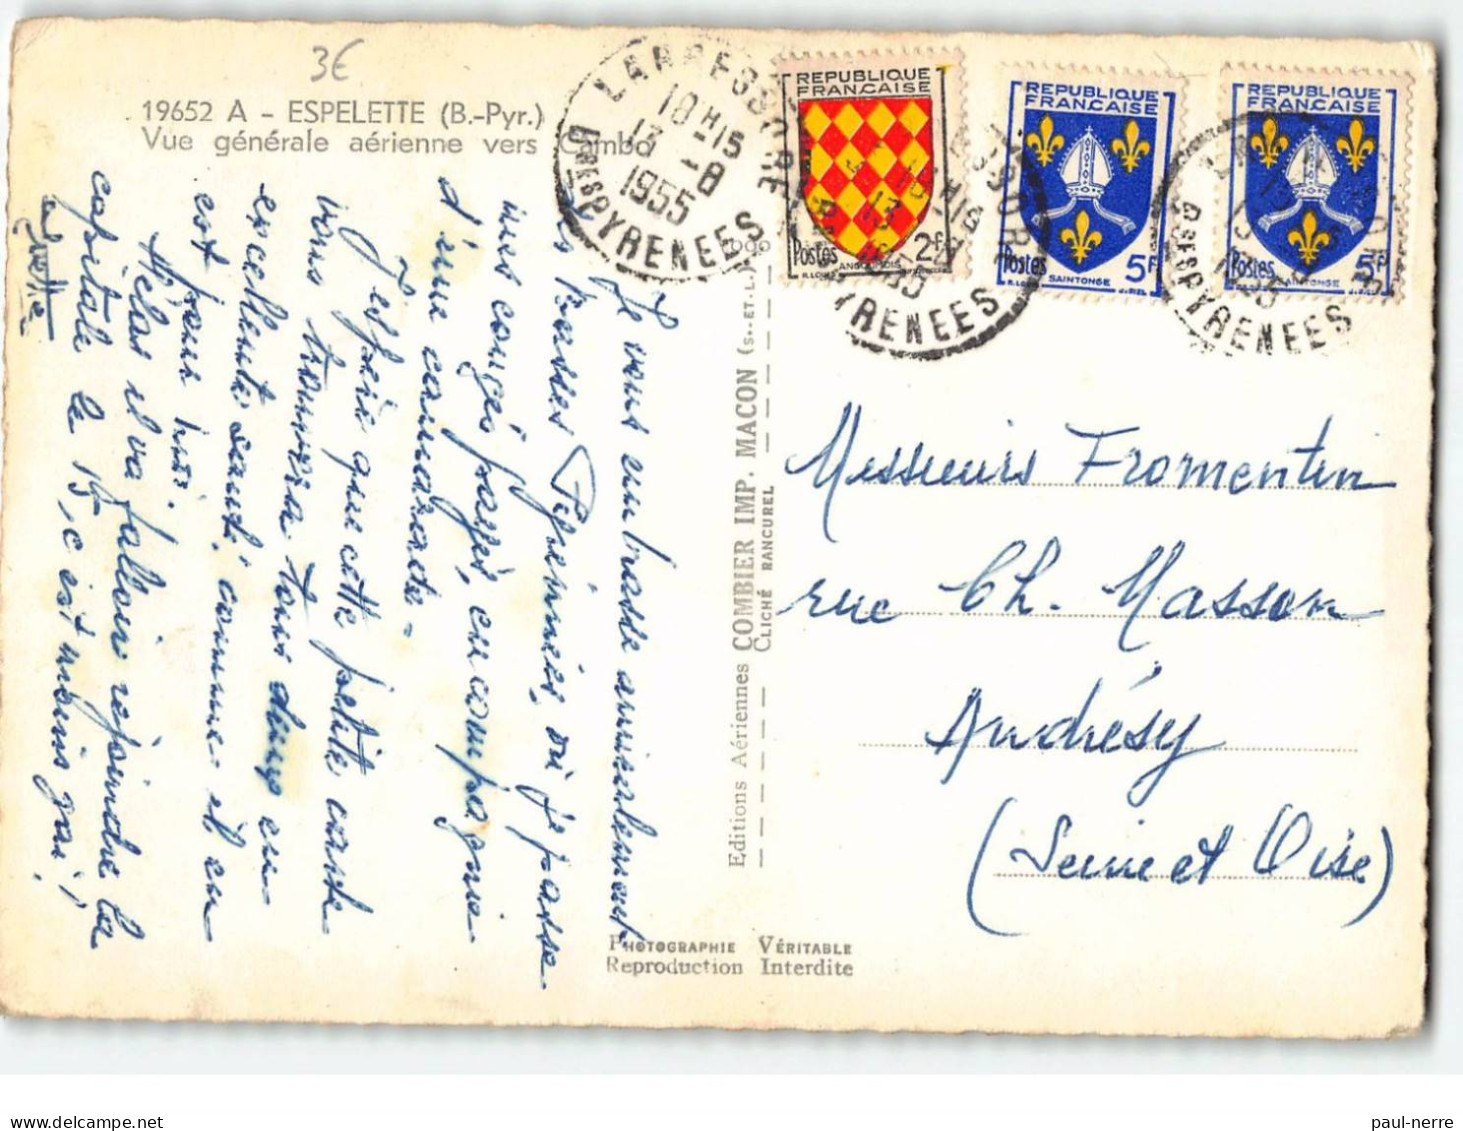 3€
19652 A - ESPELETTE (B.-Pyr.)
Vue générale aérienne vers Cambo
LARRESSORE
18H15
13 -8
1955
BSES PYRENEES
REPUBLIQUE
FRANÇAISE
Postes 2F
ANGOUMOIS
REPUBLIQUE
FRANÇAISE
Postes 5F
SAINTONGE
REPUBLIQUE
FRANÇAISE
Postes 5F
SAINTONGE
Je vous embrasse amicalement
des Basses Pyrénnées, où je passe
mes congés payés, en compagnie
d'une camarade -
J'espère que cette petite carte
vous trouvera tous deux en
excellente santé, comme il en
est pour moi.
Hélas il va falloir rejoindre la
capitale le 15, c'est moins gai!
Editions Aériennes COMBIER IMP. MACON (S.-ET-L.)
CLICHÉ RANCUREL
Messieurs Fromentin
rue Ch. Masson
Andrésy
(Seine et Oise)
PHOTOGRAPHIE VÉRITABLE
Reproduction Interdite
paul-nerre